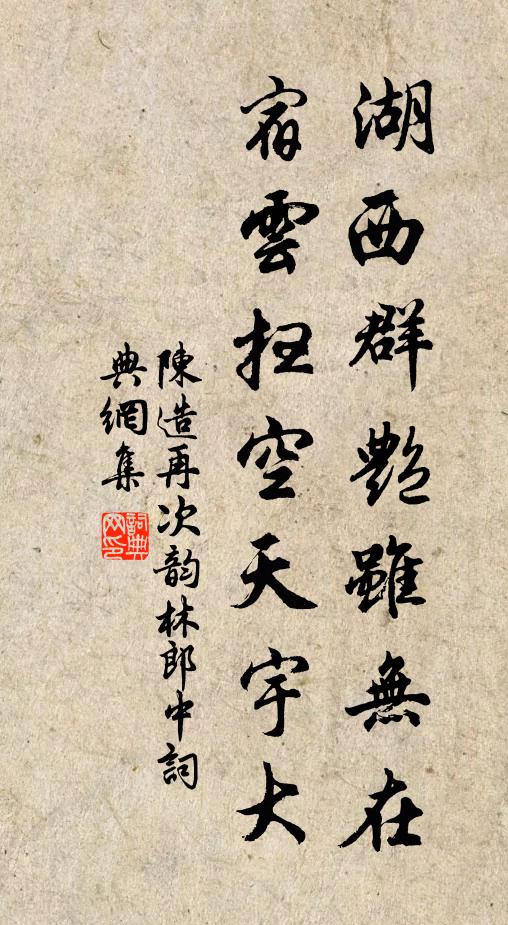 湖西群艷雖無在
宿雲扫空天宇大
陳造再次韵林郎中詞
典網集
詞典网印